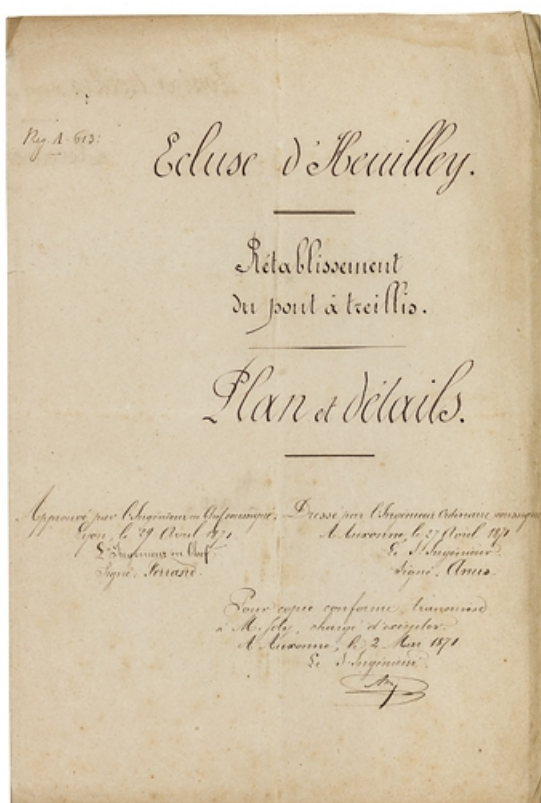 Reg. A - 613:
Ecluse d'Heuilley.
Rétablissement
du pont à treillis.
Plan et détails.
Approuvé par l'Ingénieur en Chef soussigné.
Lyon, le 29 Avril 1871.
L'Ingénieur en Chef
Signé:
Dressé par l'Ingénieur Ordinaire soussigné
A Auxonne, le 27 Avril 1871
Le S. Ingénieur
Signé,
Pour copie conforme, transmise
à M. chargé d'exécuter.
A Auxonne, le 2 Mai 1871
Le S. Ingénieur